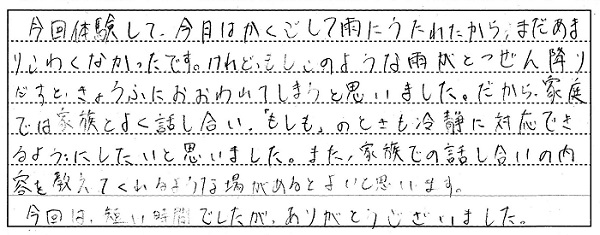 今回体験して、今日はかくごして雨にうたれたから、まだあま
りこわくなかったです。けれど、もしこのような雨がとつぜん降り
だすと、きょうふにおおわれてしまうと思いました。だから、家庭
では家族とよく話し合い、「もしも」のときも冷静に対応でき
るようにしたいと思いました。また、家族での話し合いの内
容を教えてくれるような場があるとよいと思います。
今回は、短い時間でしたが、ありがとうございました。